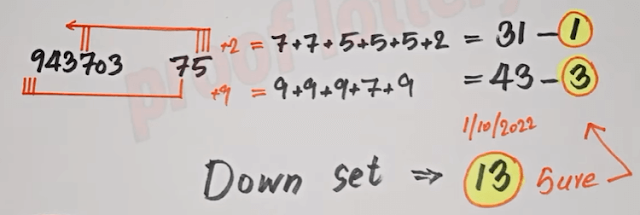 +2 = 7+7+5+5+5+2 = 31 - 1
943703 75
+9 = 9+9+9+7+9 = 43 - 3
1/10/2022
Down set ⇒ 13 Sure
proof lottery